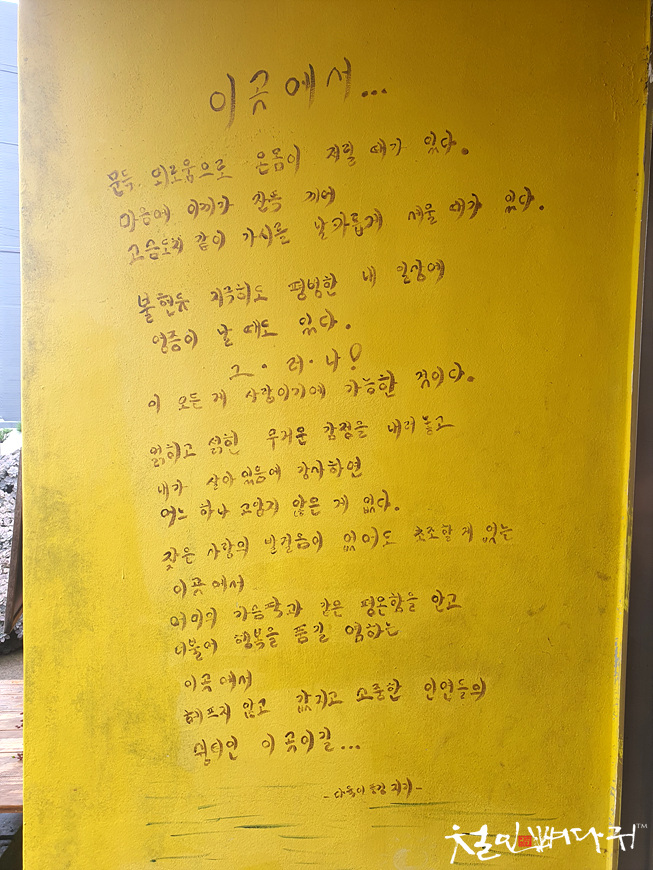 이곳에서...
문득 외로움으로 온몸이 저릴 때가 있다.
마음에 이끼가 잔뜩 끼어
고슴도치 같이 가시를 날카롭게 세울 때가 있다.
불현듯 지극히도 평범한 내 일상에
염증이 날 때도 있다.
그·러·나!
이 모든 게 사람이기에 가능한 것이다.
얽히고 섥힌 무거운 감정을 내려놓고
내가 살아 있음에 감사하면
어느 하나 고맙지 않은 게 없다.
잦은 사람의 발걸음이 없어도 초조할 게 없는
이곳에서
어미의 가슴팍과 같은 평온함을 안고
더불어 행복을 품길 염하는
이곳에서
헤프지 않고 값지고 소중한 인연들의
쉼터인 이곳이길...
지기-
철인뼈다귀™